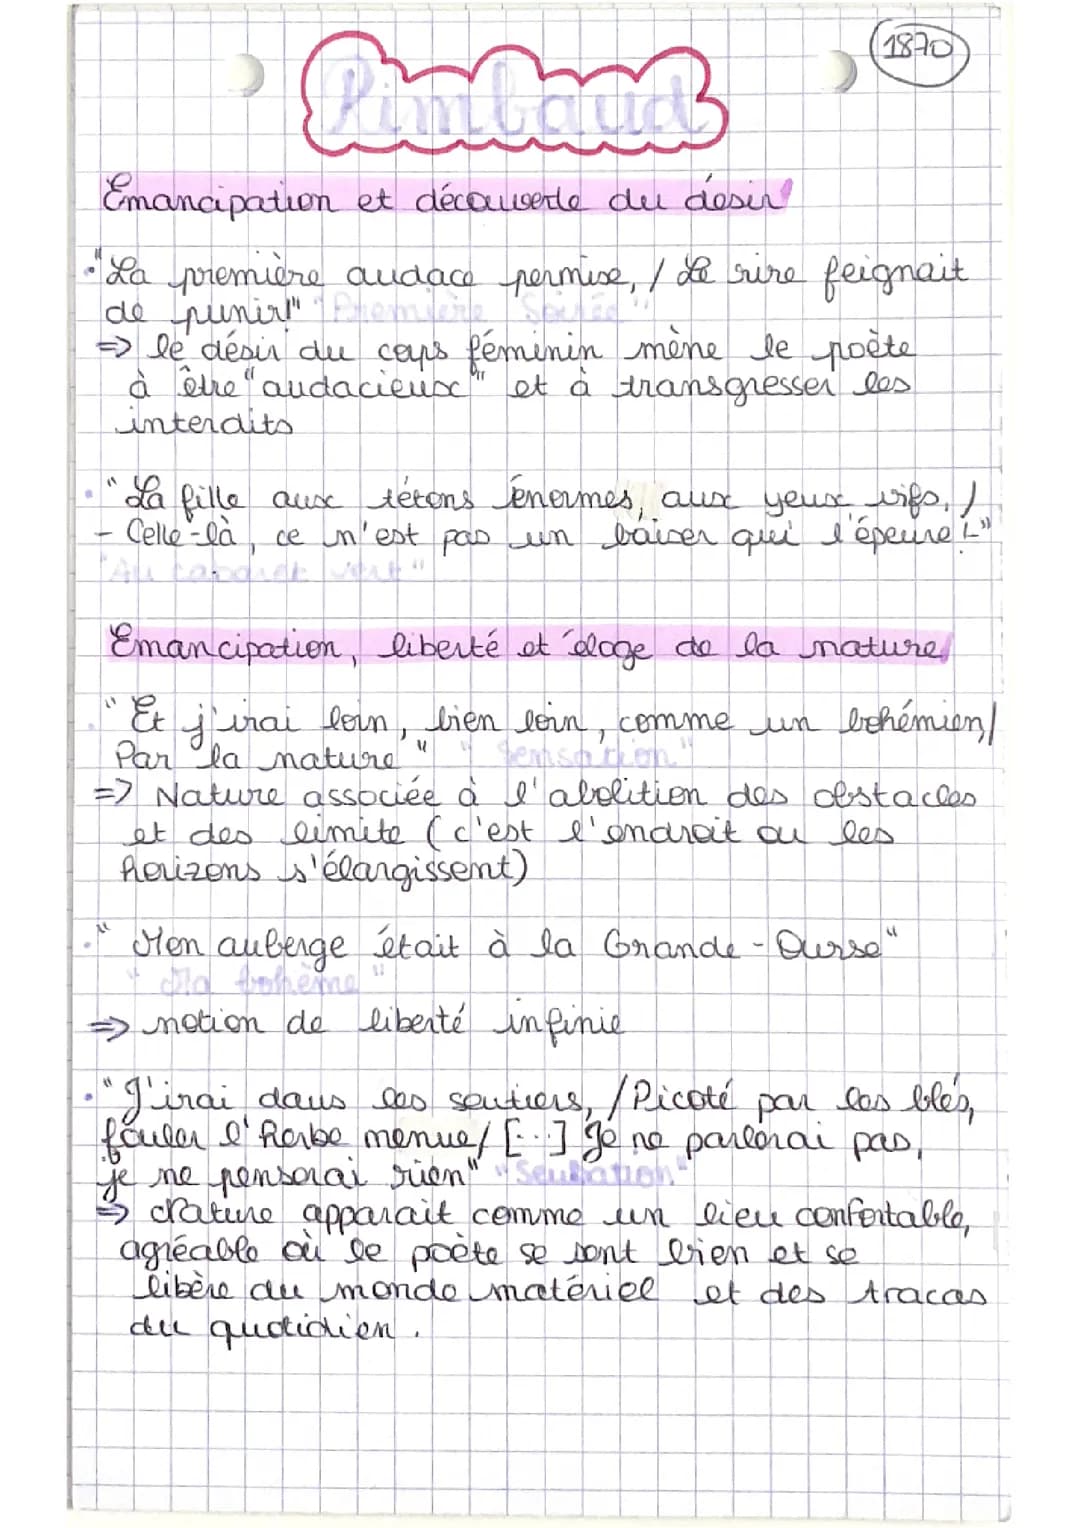 1870
Rimbaud
Emancipation et découverte du désir
• "La première audace permise, / Le rire feignait
de punir!" "Première Soirée"
=> le désir du corps féminin mène le poète
à être "audacieux" et à transgresser les
interdits
• "La fille aux tétons énormes, aux yeux vifs, /
- Celle-là, ce n'est pas un baiser qui l'épeure !-"
"Au cabaret vert"
Emancipation, liberté et éloge de la nature
• "Et j'irai loin, bien loin, comme un bohémien, /
Par la nature" "Sensation"
=> Nature associée à l'abolition des obstacles
et des limite (c'est l'endroit ou les
horizons s'élargissent)
• "Mon auberge était à la Grande-Ourse"
"Ma bohème"
=> notion de liberté infinie
• "J'irai dans les sentiers, / Picoté par les blés,
fouler l'herbe menue / [...] Je ne parlerai pas,
je ne penserai rien" "Sensation"
=> Nature apparait comme un lieu confortable,
agréable où le poète se sent bien et se
libère du monde matériel et des tracas
du quotidien.